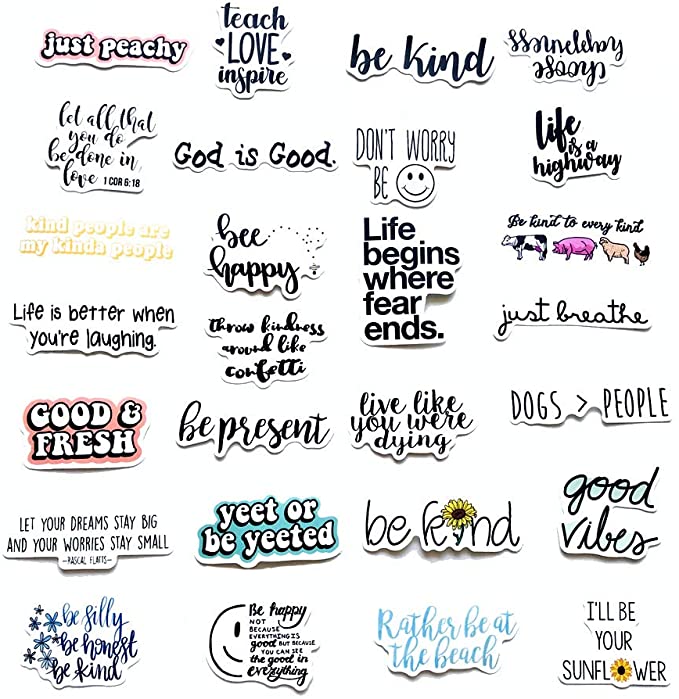 just peachy
teach
LOVE
inspire
be kind
choose
happiness
let all that
you do
be done in
love 1 COR 6:18
God is Good.
DON'T WORRY
BE
life
is a
highway
kind people are
my kinda people
bee
happy
Life
begins
where
fear
ends.
Be kind to every kind
Life is better when
you're laughing.
throw kindness
around like
confetti
just breathe
GOOD &
FRESH
be present
live like
you were
dying
DOGS > PEOPLE
LET YOUR DREAMS STAY BIG
AND YOUR WORRIES STAY SMALL
-RASCAL FLATTS-
yeet or
be yeeted
be kind
good
vibes
be silly
be honest
be kind
Be happy
NOT
BECAUSE
EVERYTHING IS
good BUT BECAUSE
YOU CAN SEE
the good in
everything
Rather be at
the beach
I'LL BE
YOUR
SUNFLOWER